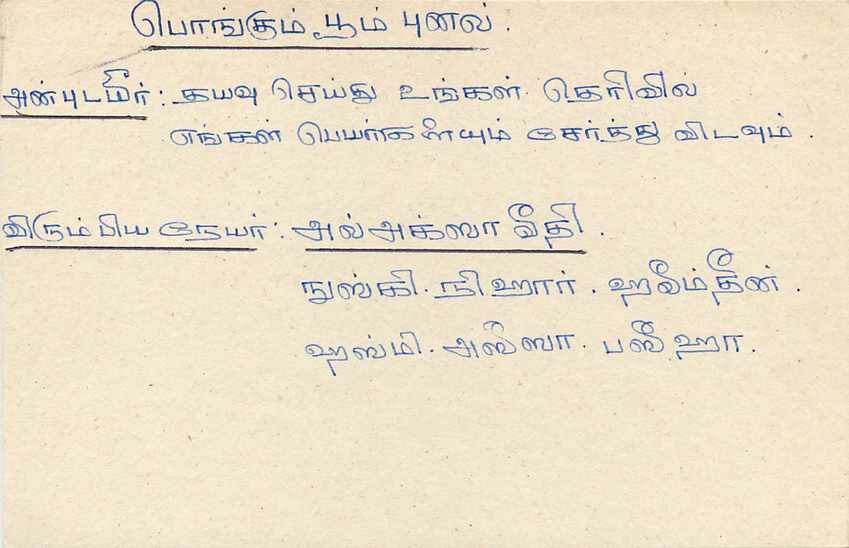 பொங்கும் பூம் புனல்.
அன்புடமீர்: தயவு செய்து உங்கள் தெரிவில்
எங்கள் பெயர்களையும் சேர்த்து விடவும்.
விரும்பிய நேயர்: அல் அக்ஸா வீதி.
நுஸ்கி. நிஹார். ஹலீம்தீன்.
ஹஸ்மி. அஸீஸா. பஸீஹா.